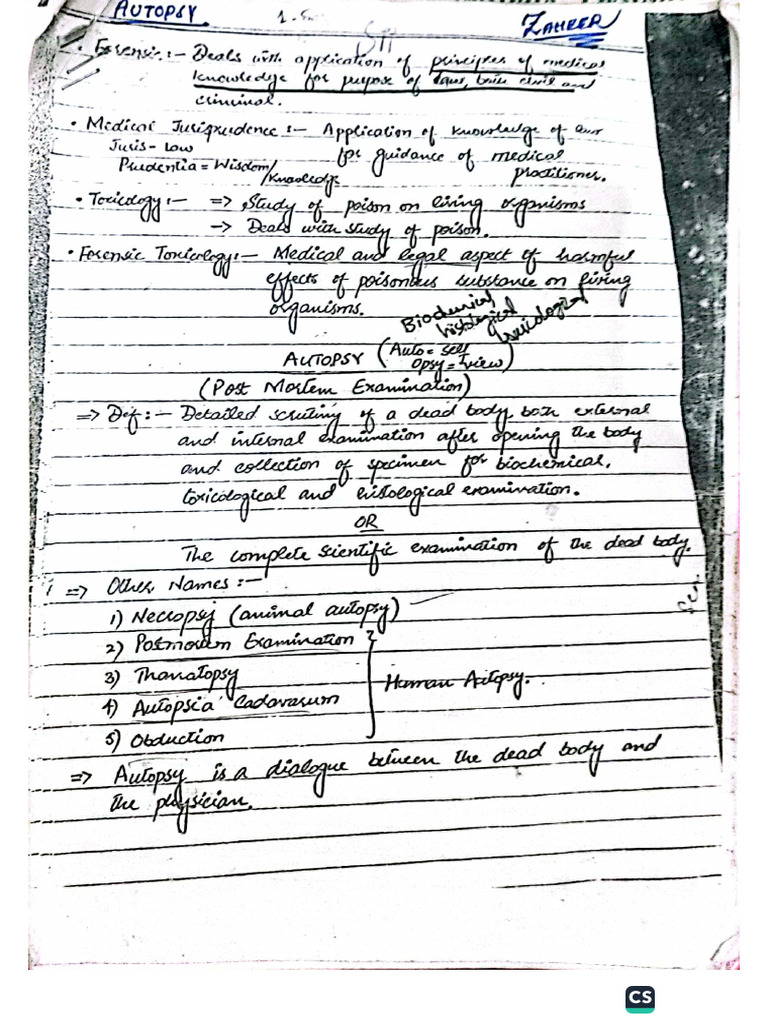 AUTOPSY
ZAHEER
• Forensic:- Deals with application of principles of medical
knowledge for purpose of laws, both civil and
criminal.
• Medical Jurisprudence :- Application of knowledge of law
Juris - Low for guidance of medical
Prudentia = Wisdom/Knowledge practitioner.
• Toxicology :- => Study of poison on living organisms
-> Deals with study of poison.
• Forensic Toxicology:- Medical and legal aspect of harmful
effects of poisonous substance on living
organisms.
Biochemical
histological
toxicological
AUTOPSY (Auto = self
Opsy = view)
(Post Mortem Examination)
=> Def :- Detailed scrutiny of a dead body both external
and internal examination after opening the body
and collection of specimen for biochemical,
toxicological and histological examination.
OR
The complete scientific examination of the dead body.
=> Other Names :-
1) Necropsy (animal autopsy)
2) Postmortum Examination
3) Thanatopsy
4) Autopsia Cadavarum
Human Autopsy.
5) Obduction
=> Autopsy is a dialogue between the dead body and
the physician.
CS